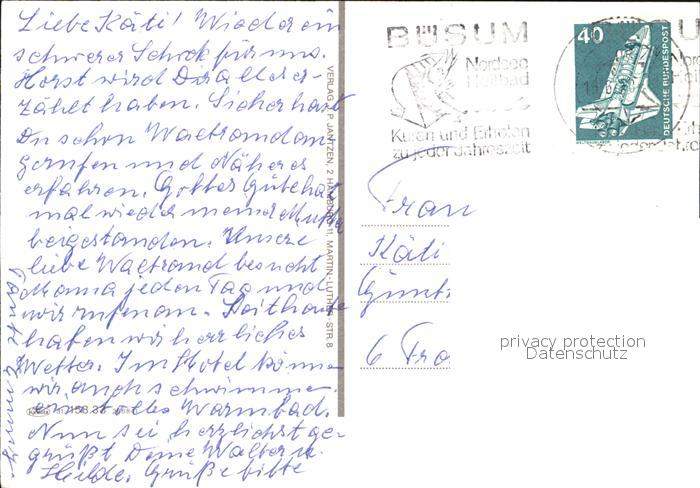 Liebe Käti! Wieder ein
schwerer Schock für uns.
Horst wird Dir alles er-
zählt haben. Sicher hast
Du schon Waltraud an-
gerufen und Näheres
erfahren. Gottes Güte hat
mal wieder meine Mutter
beigestanden. Unsere
liebe Waltraud besucht
Mama jeden Tag und
wir rufen an. Seit heute
haben wir herrliches
Wetter. Im Hotel können
wir auch schwimmen
ein tolles Warmbad.
Nun sei herzlichst ge-
grüßt Deine Walter u.
Hilde. Grüße bitte
VERLAG P. JANTZEN, 2 HAMBURG 11, MARTIN-LUTHER-STR. 8
BÜSUM
Nordsee
Heilbad
Kuren und Erholen
zu jeder Jahreszeit
40
DEUTSCHE BUNDESPOST
Frau
Käti
Günt
6 Fra
privacy protection
Datenschutz